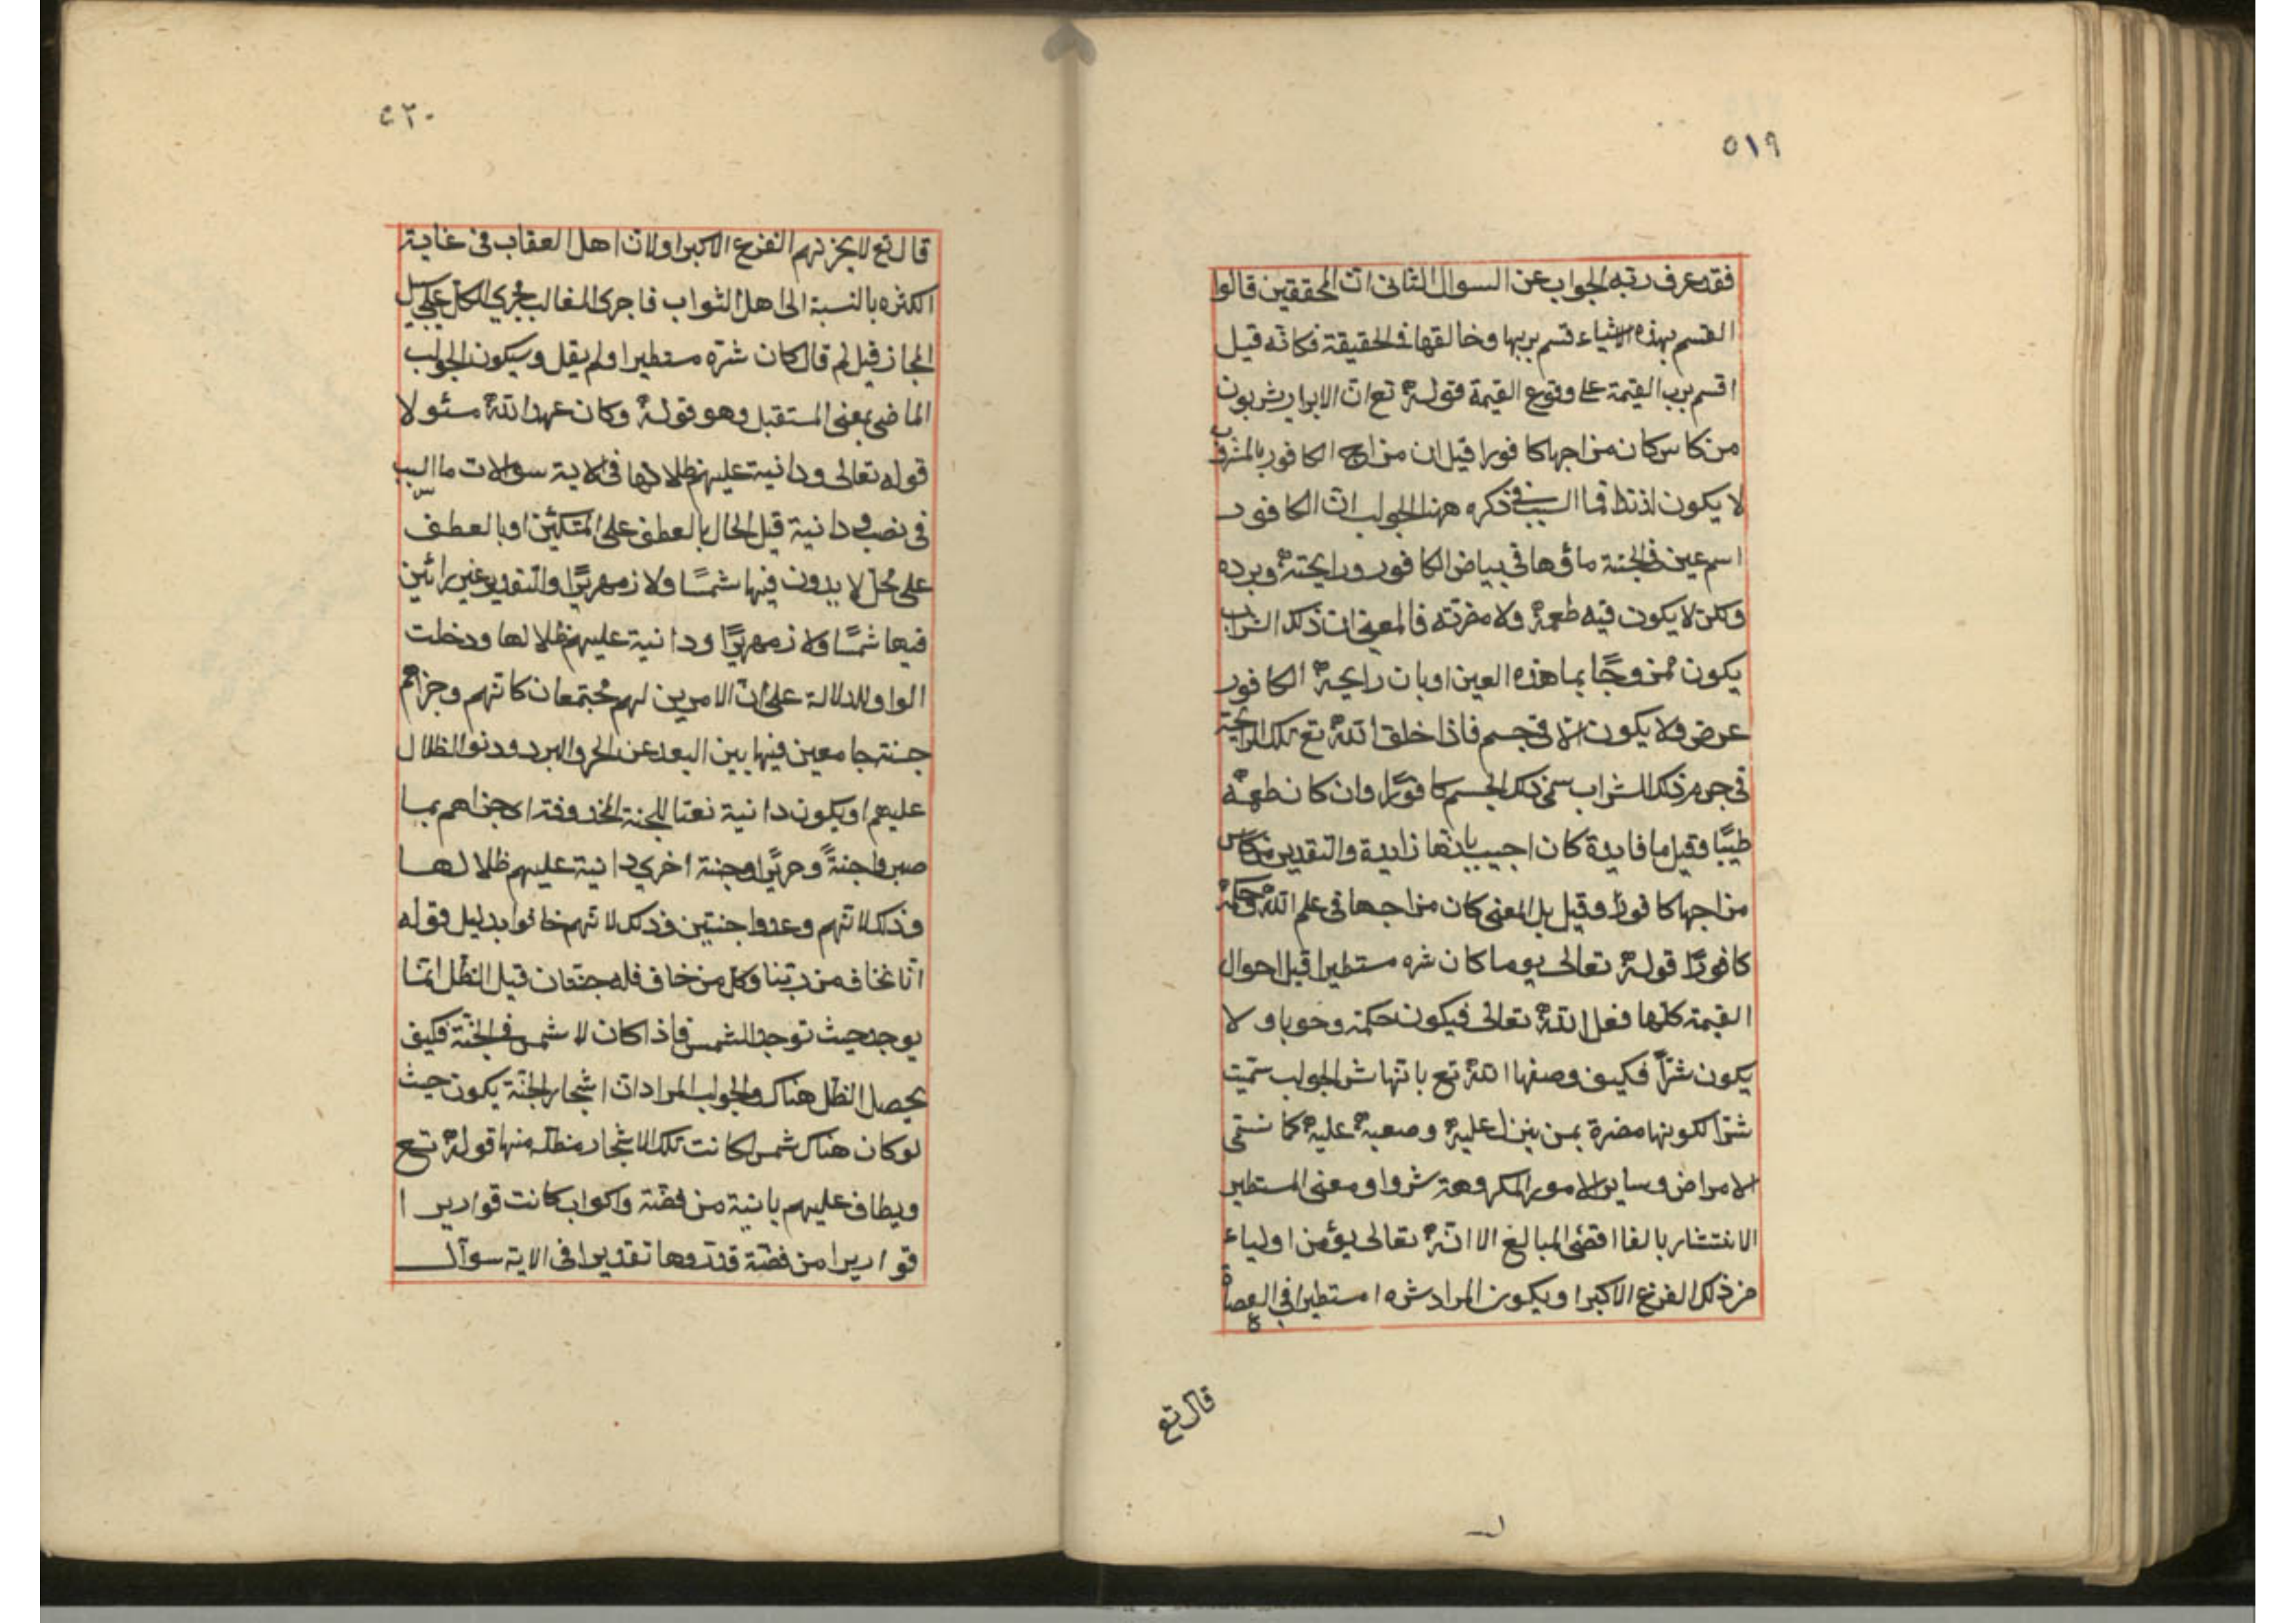 ٥١٩
فقد عرف ربه الجواب عن السوال الثانى ان المحققين قالوا
القسم بهذه الاشياء قسم بربها وخالقها فى الحقيقة فكانه قيل
اقسم برب القيمة على وقوع القيمة قوله تع ان الابرار يشربون
من كاس كان مزاجها كافورا قيل ان مزاج الكافور بالمشروب
لا يكون لذيذا فما السبب فى ذكره ههنا الجواب ان الكافور
اسم عين فى الجنة ماؤها فى بياض الكافور ورايحته وبرده
ولكن لا يكون فيه طعمه ولا مضرته فالمعنى ان ذلك الشراب
يكون ممزوجًا بما هذه العين او بان رايحة الكافور
عرض فلا يكون الا فى جسم فاذا خلق الله تع تلك الرايحة
فى جرم ذلك الشراب سمى ذلك الجسم كافورًا وان كان طعمه
طيبًا فقيل ما فايدة كان اجيب بانها زايدة والتقدير من كاس
مزاجها كافورًا وقيل بل المعنى كان مزاجها فى علم الله وحكمه
كافورًا قوله تعالى يوما كان شره مستطيرا قيل احوال
القيمة كلها فعل الله تعالى فيكون حكمة وخوبا ولا
يكون شرًا فكيف وصفها الله تع بانها شر الجواب سميت
شرا لكونها مضرة بمن ينزل عليه وصعبة عليه كما تسمى
الامراض وساير الامور المكروهة شروا ومعنى المستطير
الانتشار بالغا اقصى المبالغ الا انه تعالى يؤمن اولياء
من ذلك الفزع الاكبر او يكون المراد شره مستطيرا فى العصاة
قال تع
٥٢٠
قال تع لا يحزنهم الفزع الاكبر اولان اهل العقاب فى غاية
الكثره بالنسبة الى اهل الثواب فاجرى الغالب مجرى الكل على سبيل
المجاز قيل لم قال كان شره مستطيرا ولم يقل وسيكون الجواب
الماضى بمعنى المستقبل وهو قوله وكان عهد الله مسئولا
قوله تعالى ودانية عليهم ظلالها فى الاية سوالات ما السبب
فى نصب ودانية قيل الحال بالعطف على المتكئين او بالعطف
على محل لا يرون فيها شمسًا ولا زمهريرًا والتقدير غير رائين
فيها شمسًا ولا زمهريرًا ودانية عليهم ظلالها ودخلت
الواو للدلالة على ان الامرين لهم مجتمعان كانهم وجزاهم
جنة جامعين فيها بين البعد عن الحر والبرد ودنو الظلال
عليهم او يكون دانية نعتا للجنة اى جزاهم بما
صبروا جنةً وحريرًا وجنة اخرى دانية عليهم ظلالها
وذلك لانهم وعدوا جنتين وذلك لانهم خافوا بدليل قوله
انا نخاف من ربنا وكل من خاف فله جنتان قيل الظل انما
يوجد حيث توجد الشمس فاذا كان لا شمس فى الجنة فكيف
يحصل الظل هناك والجواب المراد ان اشجار الجنة يكون حيث
لو كان هناك شمس لكانت تلك الاشجار مظله منها قوله تع
ويطاف عليهم بانية من فضة واكواب كانت قواريرا
قواريرا من فضة قدروها تقديرا فى الاية سوآل